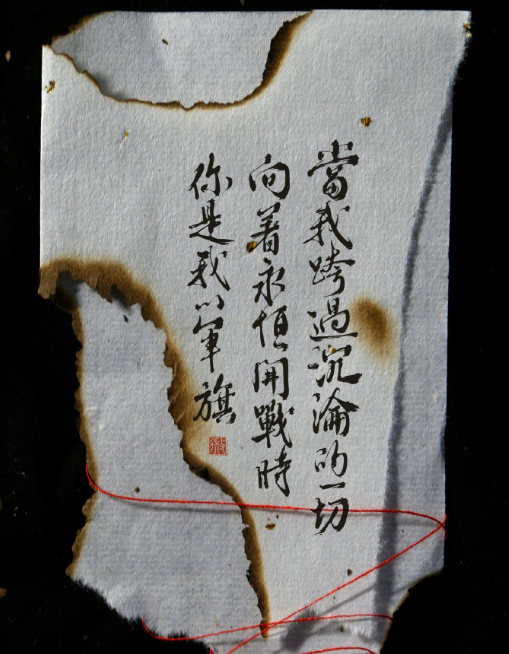 當我跨過沉淪的一切
向着永恒開戰時
你是我的軍旗